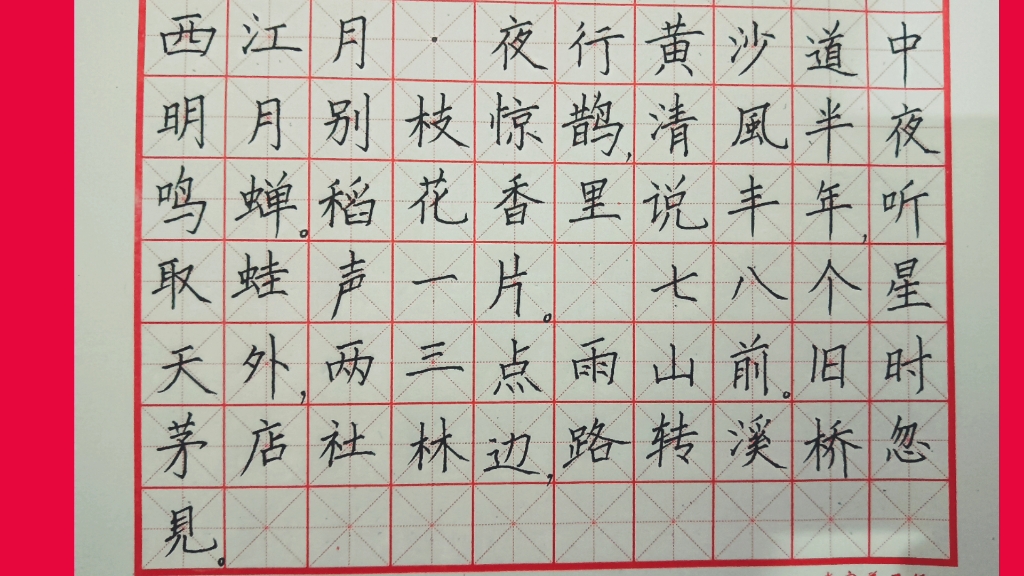 西江月·夜行黄沙道中
明月别枝惊鹊,清風半夜
鸣蝉。稻花香里说丰年,听
取蛙声一片。 七八个星
天外,两三点雨山前。旧时
茅店社林边,路转溪桥忽
見。